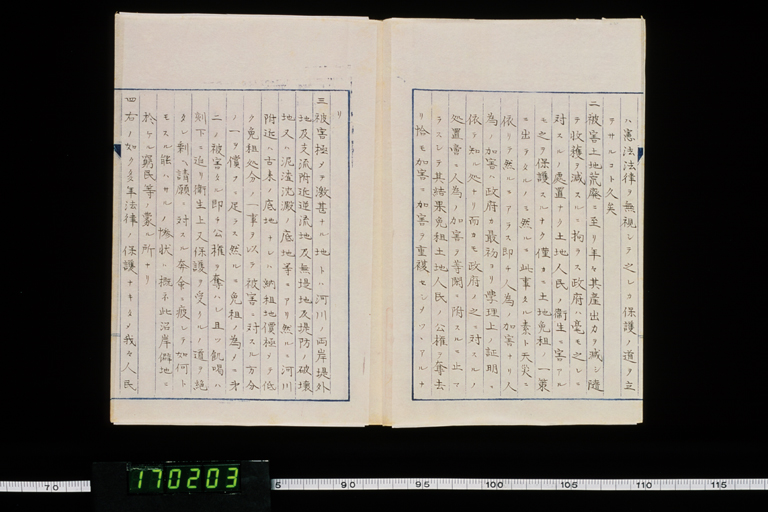 ハ憲法法律ヲ無視シテ之レカ保護ノ道ヲ立
テサルコト久矣
二被害土地荒廃ニ至リ年々其産出力ヲ減シ随
テ收穫ヲ減スルニ拘ラス政府ハ毫モ之レニ
対スルノ処置ナク土地人民ノ衛生ニ害アル
モ之ヲ保護スルナク僅カニ土地免租ノ一策
ニ出ヲタルノミ然ルニ此事タル素ト天災ニ
依リ然ルニアラス即チ人為ノ加害ナリ人
為ノ加害ハ政府カ最初ヨリ学理上ノ証明ニ
依リ知ル処ナリ而カモ政府ノ之ニ対スルノ
処置當ニ人為ノ加害ヲ等閑ニ附スルニ止マ
ラスシテ其結果免租土地人民ノ公権ヲ奪去
リ恰モ加害ニ加害ヲ重複セシメツヽアルナ
リ
三被害極メテ激甚ナル地トハ河川ノ両岸堤外
地及支流附近逆流地及無堤地及堤防ノ破壊
地又ハ泥渣沈澱ノ底地等ニアリ然ルニ河川
附近ハ古来ノ底地ナレハ納租地價極メテ低
ク免租処分ノ一事ヲ以テ被害ニ対スル万分
ノ一ヲ償フニ足ラス然ルニ免租ノ為メニ第
二ノ被害タル即チ公権ヲ奪ハレ且ツ飢喝ハ
刻下ニ迫リ衛生上又保護ヲ受クルノ道ヲ絶
タレ剰ヘ請願ニ対スル奔命ニ疲レテ如何ト
モスル能ハサルノ惨状ハ概子此沿岸僻地ニ
於ケル窮民等ノ蒙ル所ナリ
四右ノ如ク多年法律ノ保護ナキタメ我々人民
170203
7.0 5 9.0 9.5 10.0 10.5 11.0 11.5